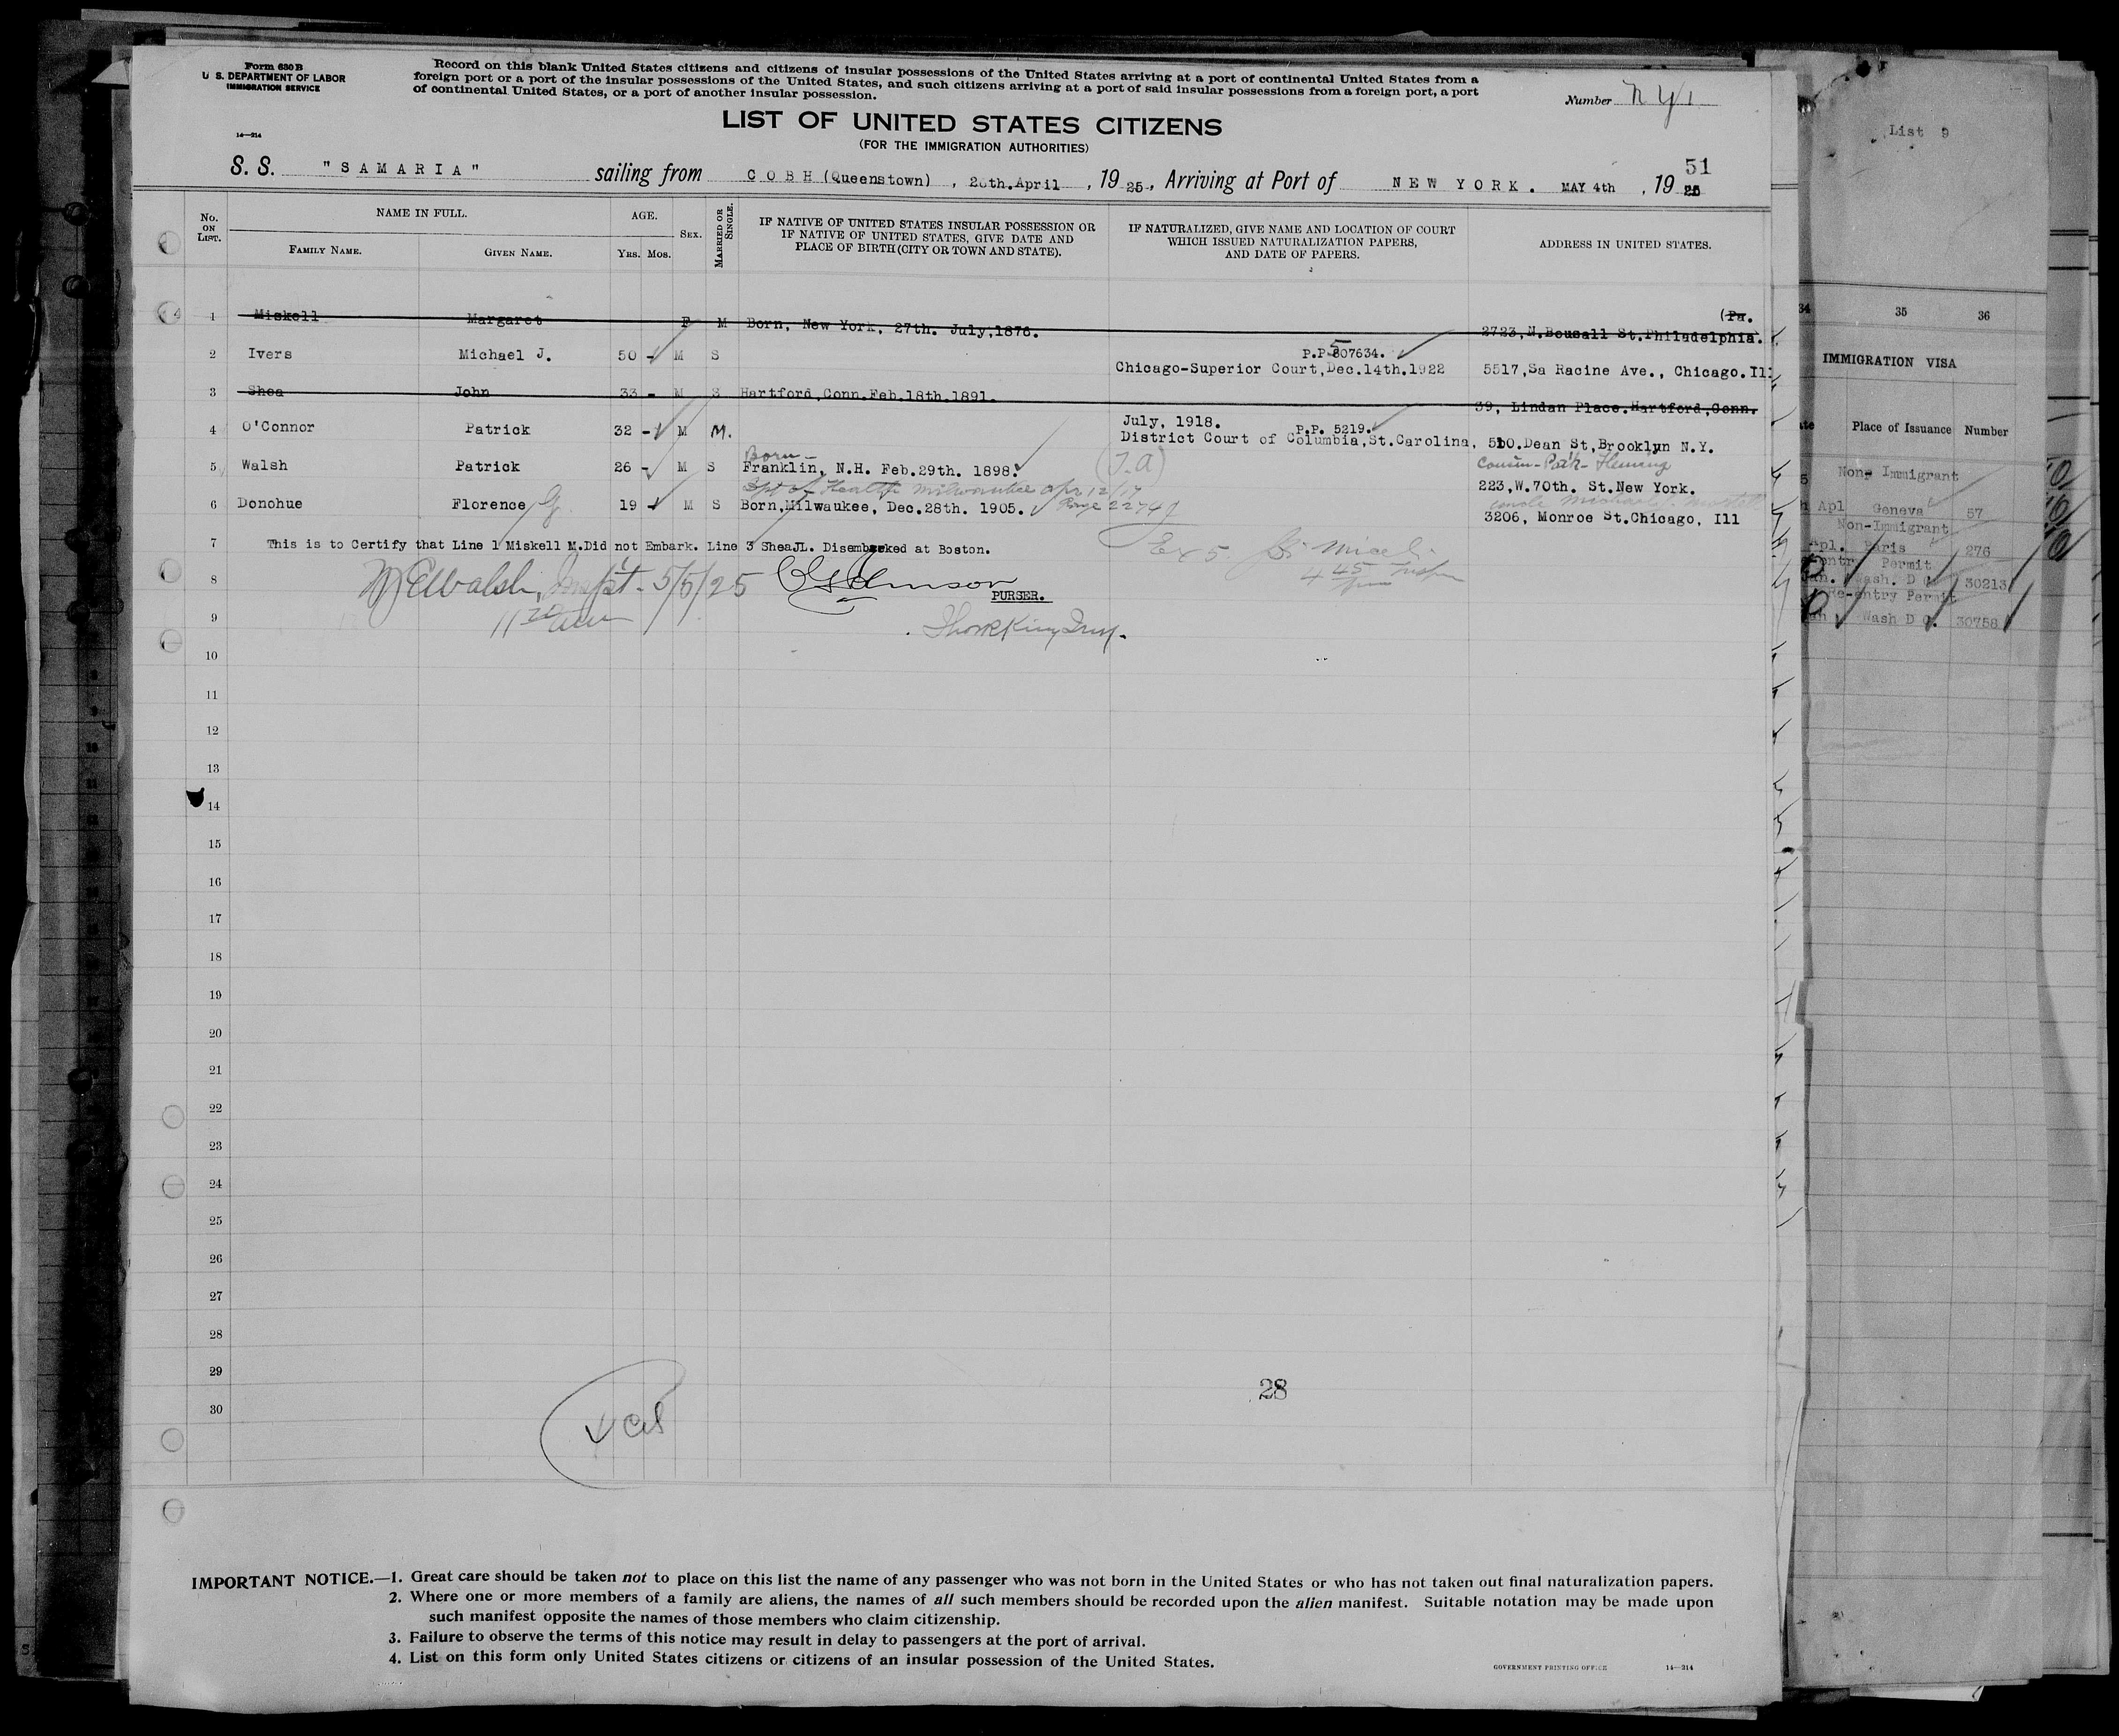 Form 630 B
U. S. DEPARTMENT OF LABOR
IMMIGRATION SERVICE
14—214
Record on this blank United States citizens and citizens of insular possessions of the United States arriving at a port of continental United States from a
foreign port or a port of the insular possessions of the United States, and such citizens arriving at a port of said insular possessions from a foreign port, a port
of continental United States, or a port of another insular possession.
Number N Y 1
LIST OF UNITED STATES CITIZENS
(FOR THE IMMIGRATION AUTHORITIES)
51
S. S. "SAMARIA" sailing from COBH (Queenstown), 26th.April, 1925, Arriving at Port of NEW YORK. MAY 4th, 1925
No. ON LIST. NAME IN FULL. FAMILY NAME. GIVEN NAME. AGE. YRS. MOS. SEX. MARRIED OR SINGLE. IF NATIVE OF UNITED STATES INSULAR POSSESSION OR IF NATIVE OF UNITED STATES, GIVE DATE AND PLACE OF BIRTH (CITY OR TOWN AND STATE). IF NATURALIZED, GIVE NAME AND LOCATION OF COURT WHICH ISSUED NATURALIZATION PAPERS, AND DATE OF PAPERS. ADDRESS IN UNITED STATES.
(Pa.
1 Miskell Margaret F M Born, New York, 27th. July,1876. 2723,N.Bousall St.Philadelphia.
P.P 507634.
2 Ivers Michael J. 50 - M S Chicago-Superior Court,Dec.14th.1922 5517,Sa Racine Ave., Chicago.Ill
3 Shea John 33 - M S Hartford,Conn.Feb.18th.1891. 39, Lindan Place.Hartford,Conn.
July, 1918. P.P. 5219.
4 O'Connor Patrick 32 - M M. District Court of Columbia,St.Carolina, 510.Dean St,Brooklyn N.Y.
Born - (T.A) Cousin - Patk - Fleming
5 Walsh Patrick 26 - M S Franklin, N.H. Feb.29th. 1898. 223,W.70th. St.New York.
Dpt of Health Milwaukee Apr 12/17
Page 2274
6 Donohue Florence G. 19 - M S Born,Milwaukee, Dec.28th. 1905. 3206, Monroe St.Chicago, Ill
7 This is to Certify that Line 1 Miskell M.Did not Embark. Line 3 SheaJL. Disembarked at Boston.
8 M E Walsh, Inspt. 5/5/25 PURSER.
9
10
11
12
13
14
15
16
17
18
19
20
21
22
23
24
25
26
27
28
29
28
30
IMPORTANT NOTICE.—1. Great care should be taken not to place on this list the name of any passenger who was not born in the United States or who has not taken out final naturalization papers.
2. Where one or more members of a family are aliens, the names of all such members should be recorded upon the alien manifest. Suitable notation may be made upon
such manifest opposite the names of those members who claim citizenship.
3. Failure to observe the terms of this notice may result in delay to passengers at the port of arrival.
4. List on this form only United States citizens or citizens of an insular possession of the United States.
GOVERNMENT PRINTING OFFICE 14—214
List 9
34 35 36
IMMIGRATION VISA
Place of Issuance Number
Non- Immigrant
Apl Geneva 57
Non-Immigrant
Apl. Paris 276
Permit
Jan. Wash. D C. 30213
Re-entry Permit
Wash D C. 30758